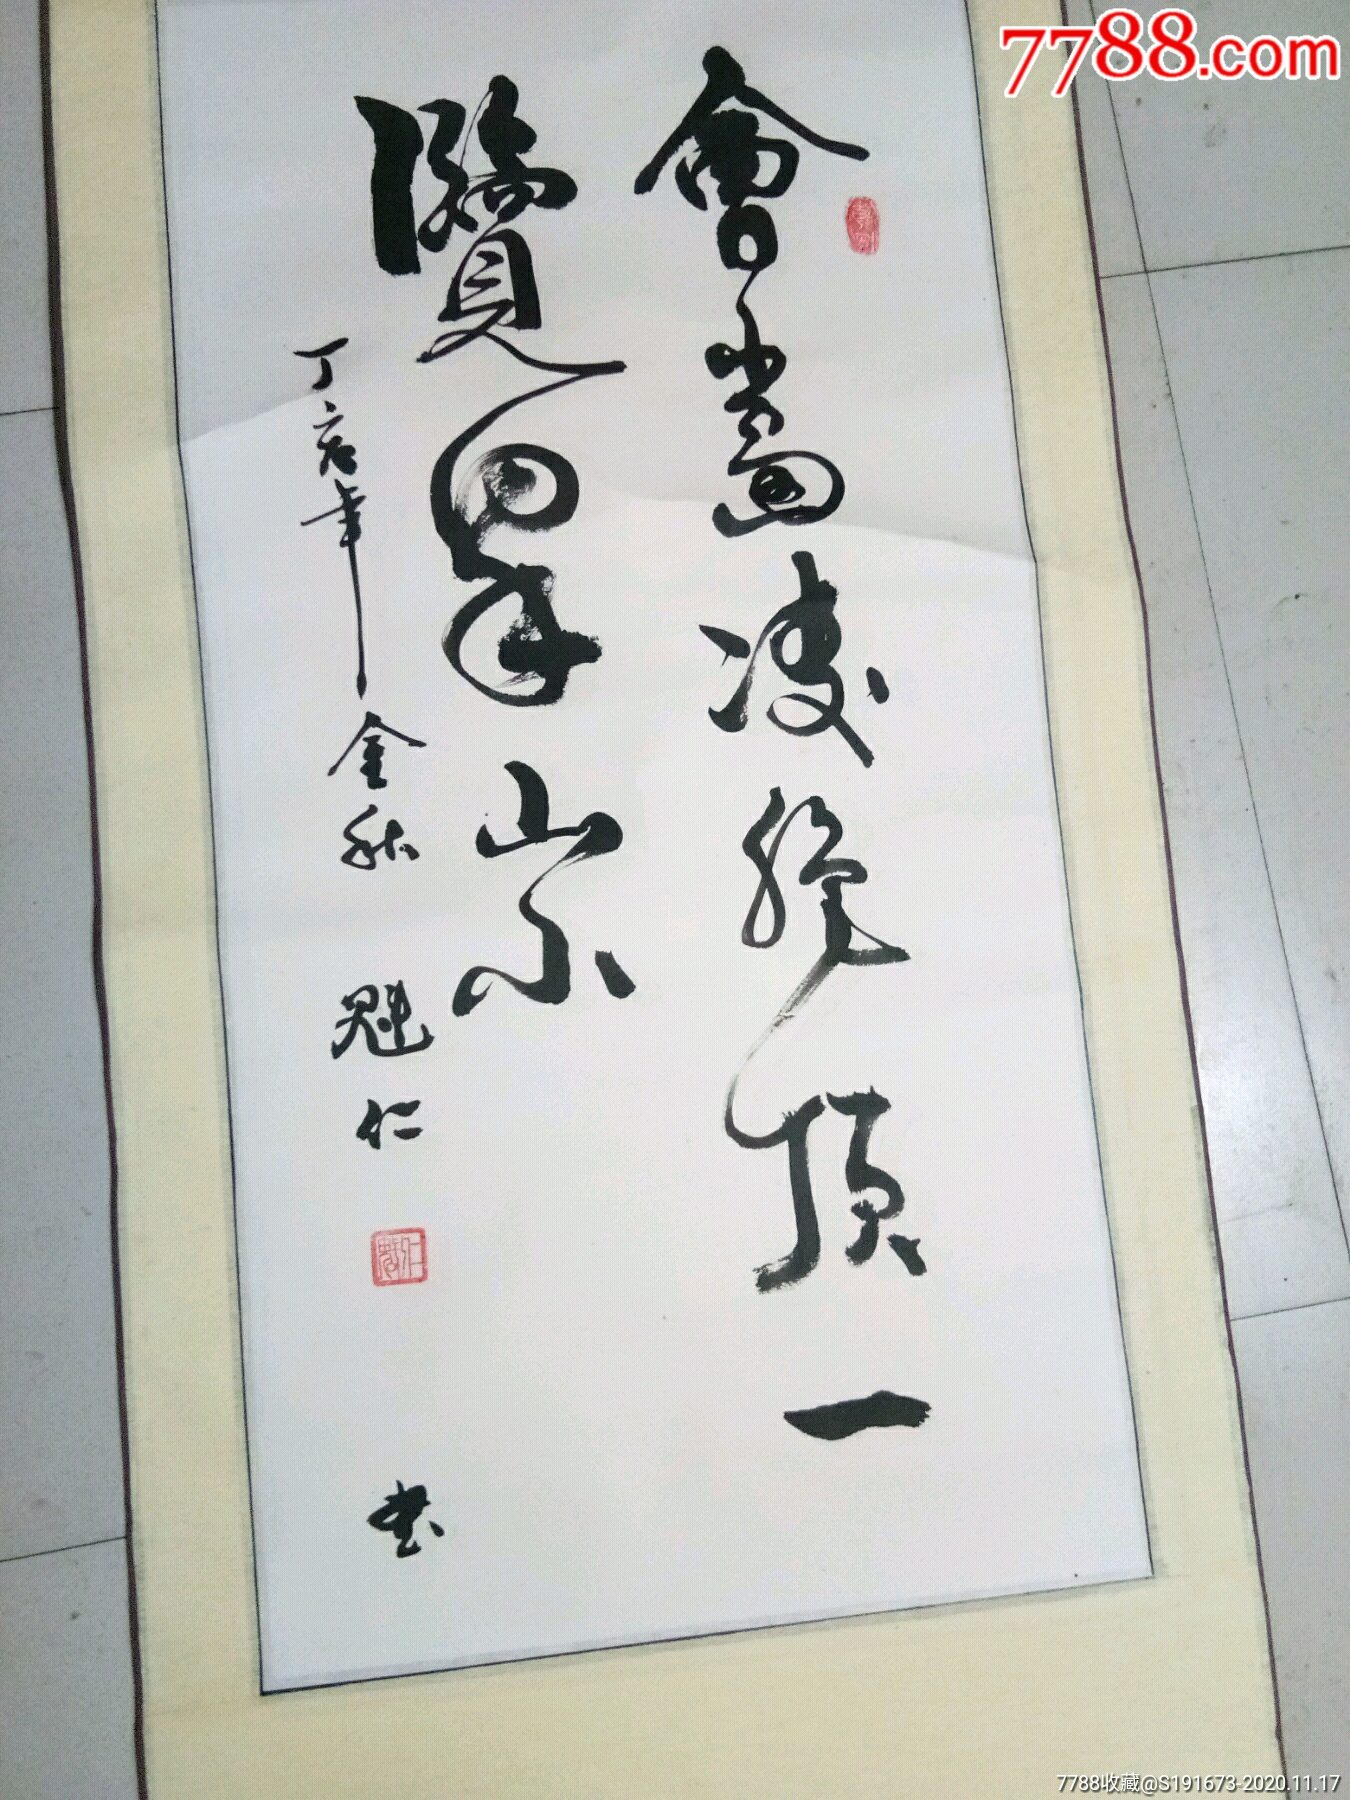 7788.com
會當凌絕頂一
覽眾山小
丁亥年金秋 魁仁 書
7788收藏@S191673-2020.11.17